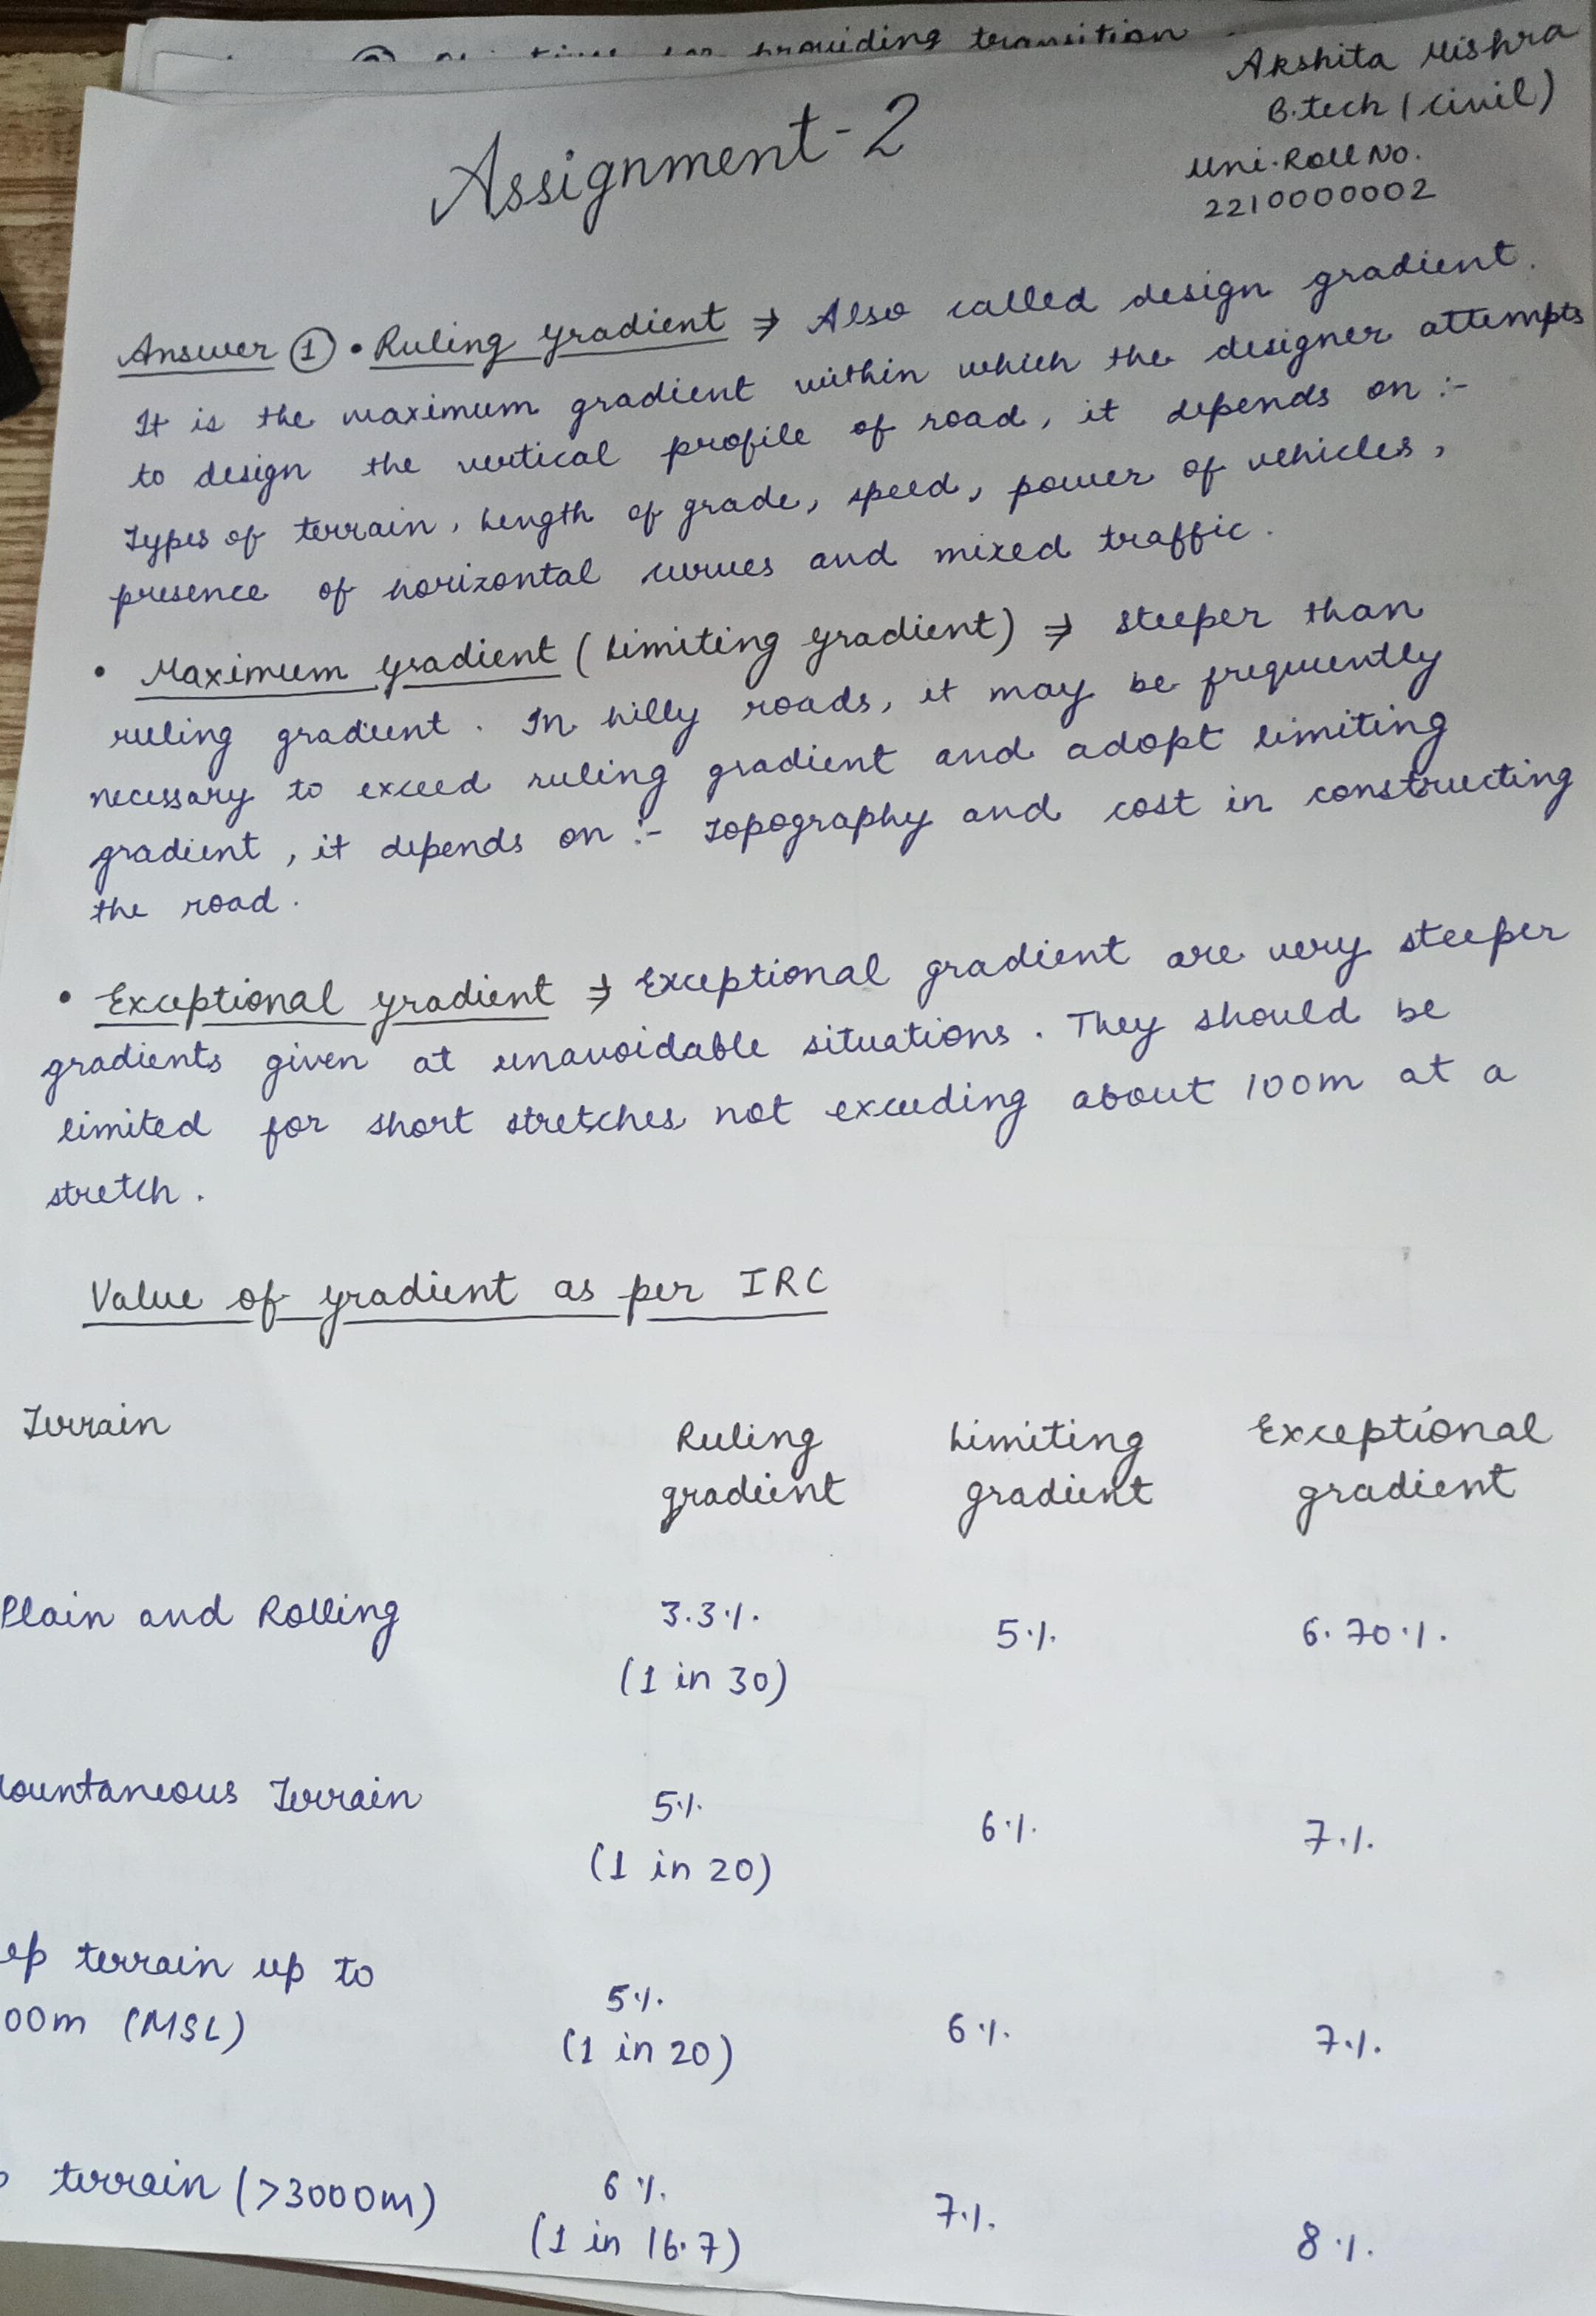 for providing transition
Akshita Mishra
B.tech (civil)
Uni. Roll No.
2210000002
Assignment-2
Answer ① • Ruling gradient ⇒ Also called design gradient.
It is the maximum gradient within which the designer attempts
to design the vertical profile of road, it depends on :-
Types of terrain, length of grade, speed, power of vehicles,
presence of horizontal curves and mixed traffic.
• Maximum gradient (Limiting gradient) ⇒ steeper than
ruling gradient. In hilly roads, it may be frequently
necessary to exceed ruling gradient and adopt limiting
gradient, it depends on :- Topography and cost in constructing
the road.
• Exceptional gradient ⇒ Exceptional gradient are very steeper
gradients given at unavoidable situations. They should be
limited for short stretches not exceeding about 100m at a
stretch.
Value of gradient as per IRC
Terrain Ruling gradient Limiting gradient Exceptional gradient
Plain and Rolling 3.3% 5% 6.70%
(1 in 30)
ountaneous Terrain 5% 6% 7%
(1 in 20)
ep terrain up to
00m (MSL) 5% 6% 7%
(1 in 20)
terrain (>3000m) 6% 7% 8%
(1 in 16.7)